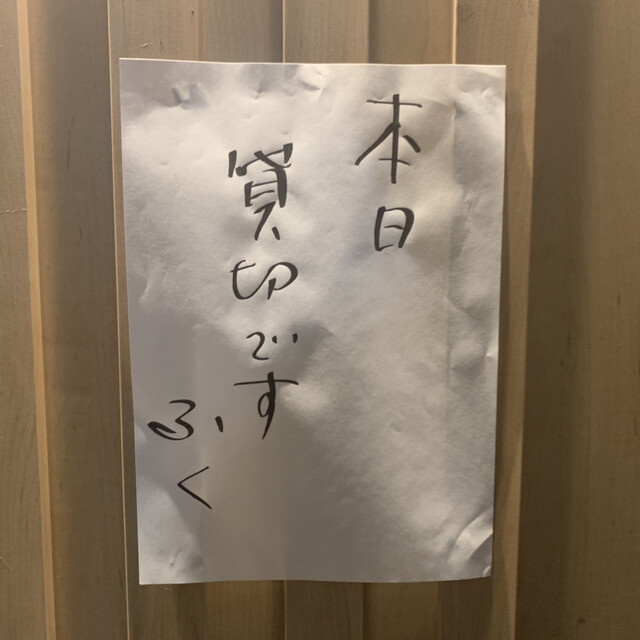 本日
貸切です
ふく